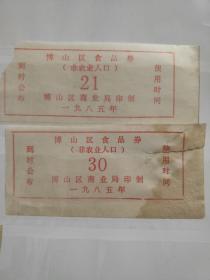 博山区食品券
(非农业人口)
到时公布
21
使用时间
博山区商业局印制
一九八五年
博山区食品券
(非农业人口)
到时公布
30
使用时间
博山区商业局印制
一九八五年